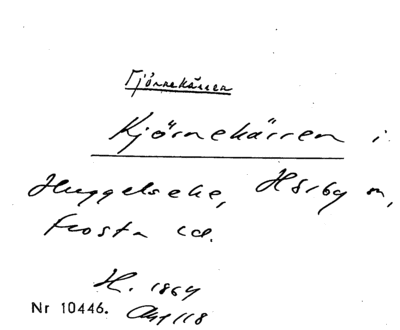 Tjörnekärren
Kjörnekärren i
Huggelseke, Hörby sn,
Frosta hd.
H. 1864
Nr 10446. 118